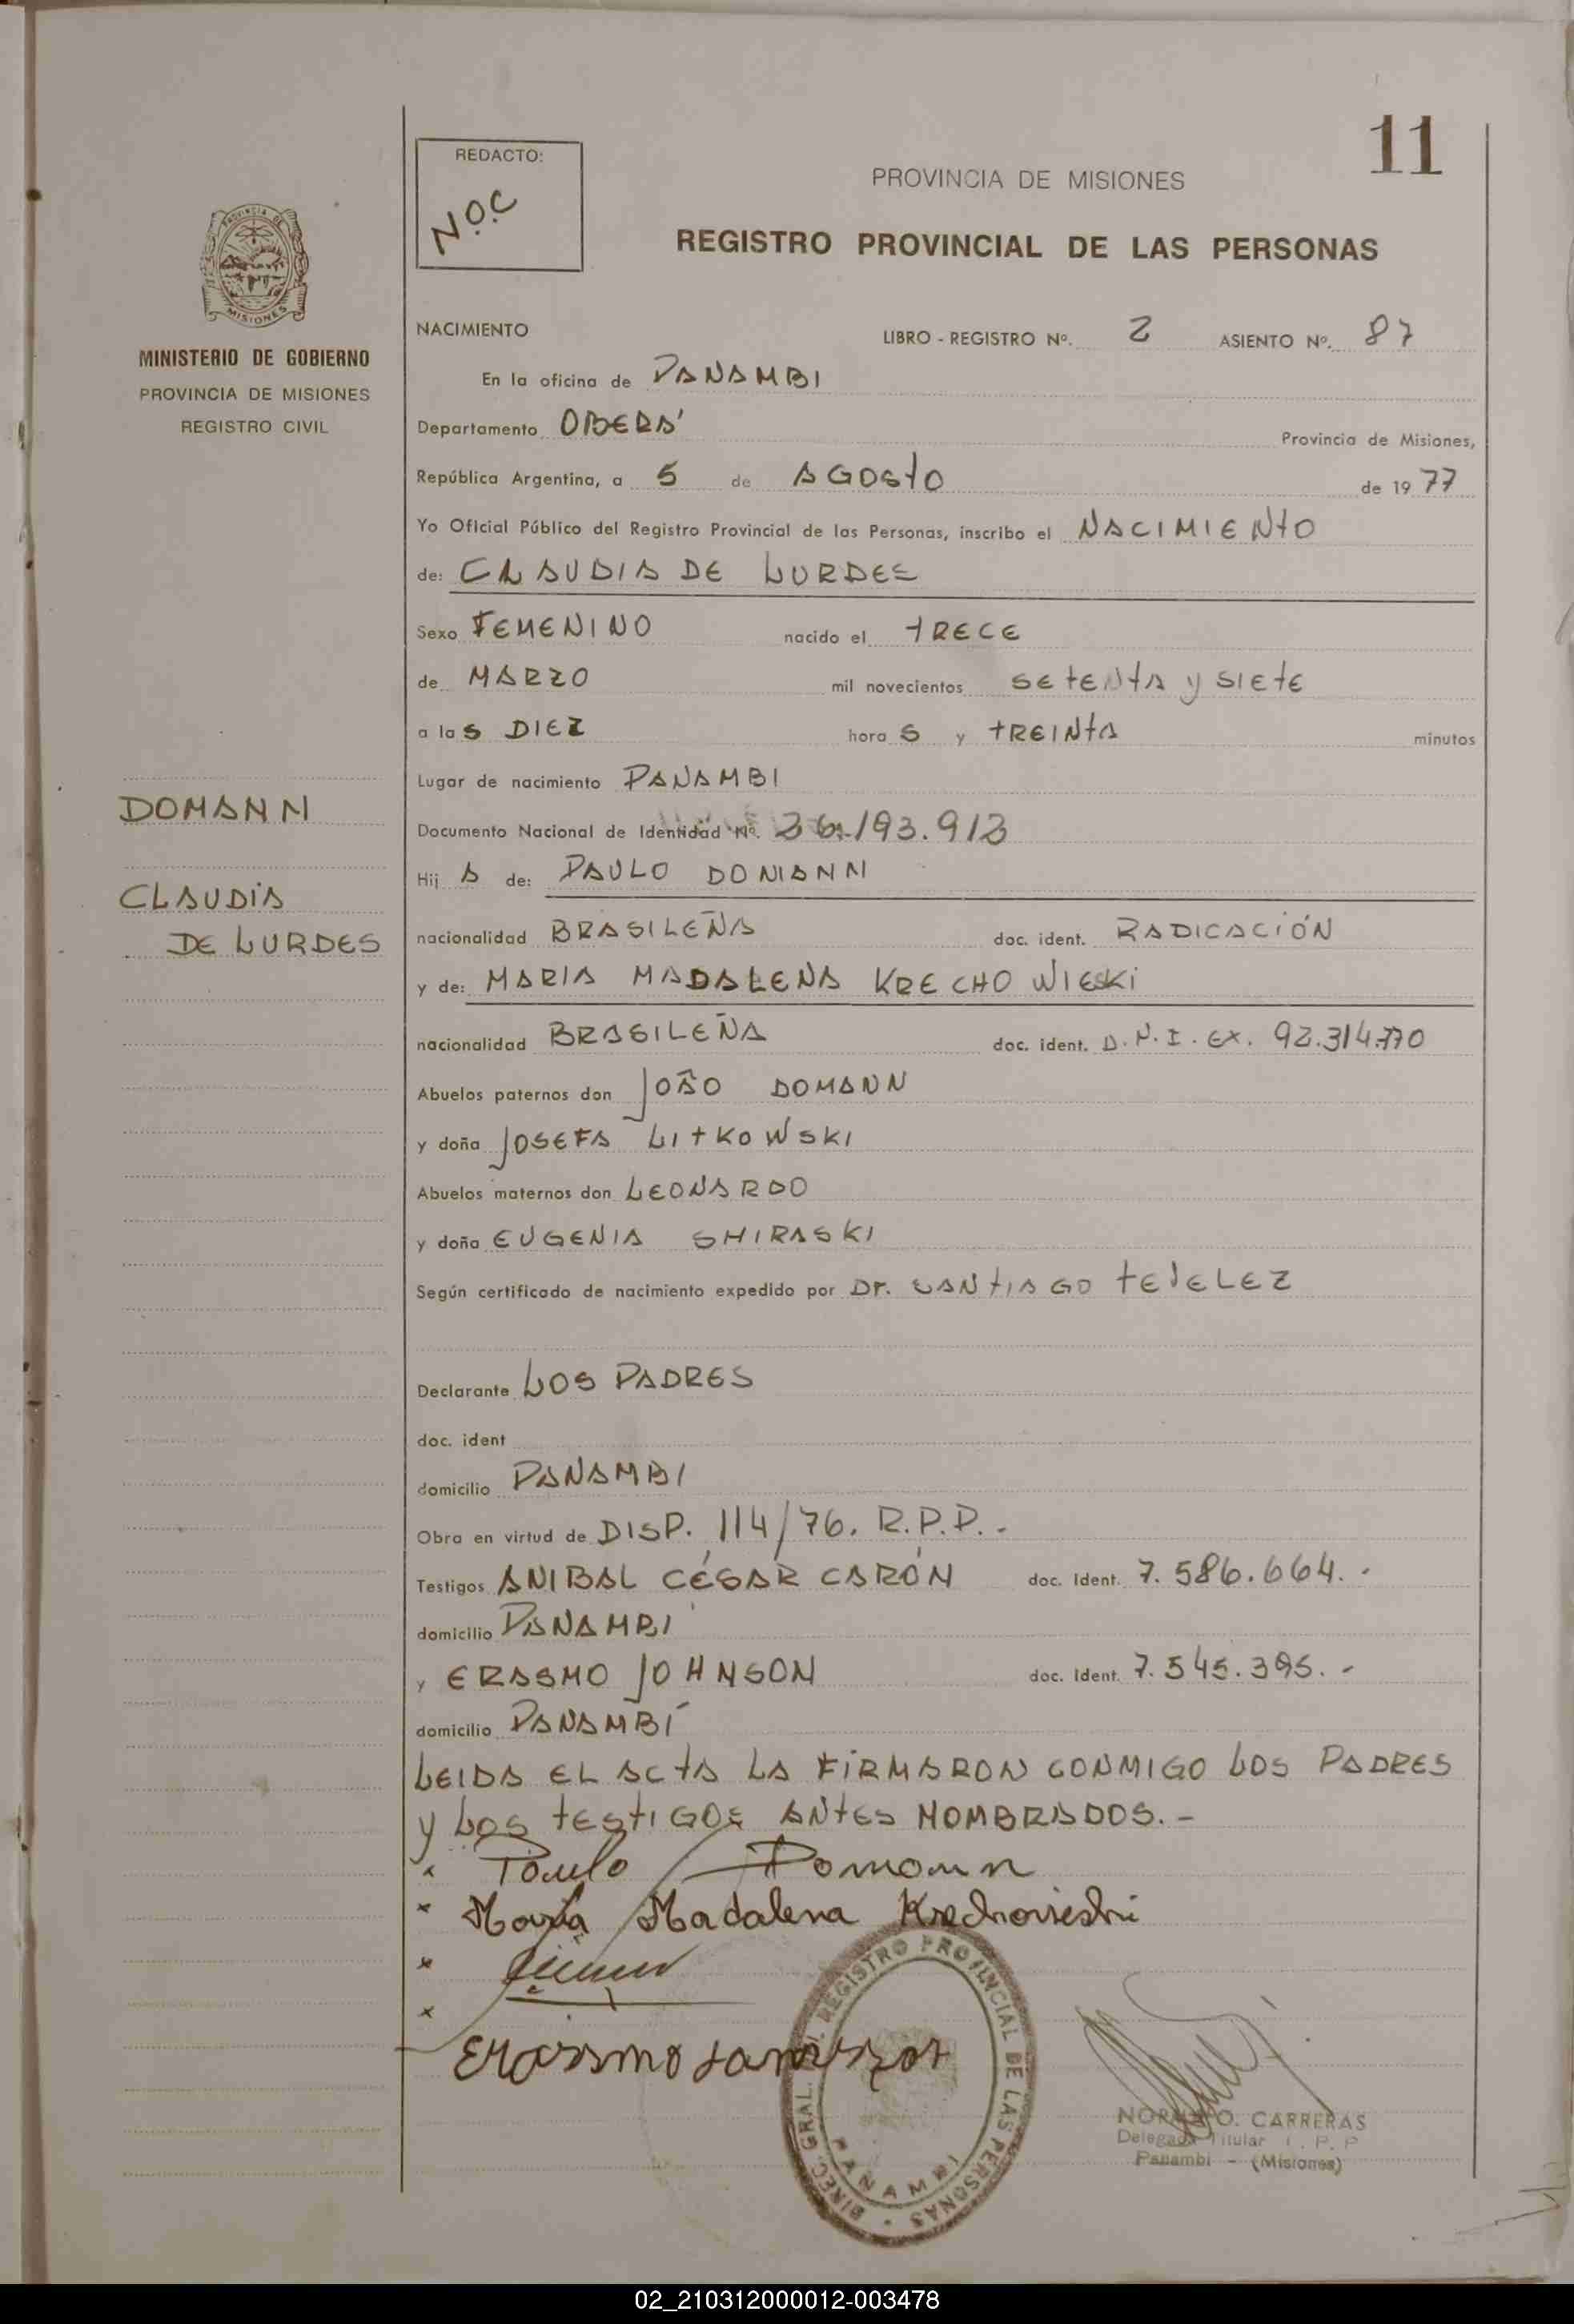 11
REDACTO:
N.O.C
PROVINCIA DE MISIONES
REGISTRO PROVINCIAL DE LAS PERSONAS
PROVINCIA DE
MISIONES
MINISTERIO DE GOBIERNO
PROVINCIA DE MISIONES
REGISTRO CIVIL
NACIMIENTO LIBRO - REGISTRO Nº. 2 ASIENTO Nº. 87
En la oficina de PANAMBI
Departamento OBERA' Provincia de Misiones,
República Argentina, a 5 de AGOSTO de 19 77
Yo Oficial Público del Registro Provincial de las Personas, inscribo el NACIMIENTO
de: CLAUDIA DE LURDES
Sexo FEMENINO nacido el TRECE
de MARZO mil novecientos SETENTA y SIETE
a las DIEZ horas y TREINTA minutos
Lugar de nacimiento PANAMBI
DOMANN
Documento Nacional de Identidad Nº. 26.193.913
Hij A de: PAULO DOMANN
CLAUDIA
DE LURDES
nacionalidad BRASILEÑA doc. ident. RADICACIÓN
y de: MARIA MADALENA KRECHOWIESKI
nacionalidad BRASILEÑA doc. ident. D.N.I. EX. 92.314.770
Abuelos paternos don JOÃO DOMANN
y doña JOSEFA LITKOWSKI
Abuelos maternos don LEONARDO
y doña EUGENIA SHIRASKI
Según certificado de nacimiento expedido por Dr. SANTIAGO TEJELEZ
Declarante LOS PADRES
doc. ident
domicilio PANAMBI
Obra en virtud de DISP. 114/76. R.P.P. -
Testigos ANIBAL CÉSAR CARÓN doc. Ident. 7.586.664. -
domicilio PANAMBI
y ERASMO JOHNSON doc. Ident. 7.545.395. -
domicilio PANAMBÍ
LEIDA EL ACTA LA FIRMARON CONMIGO LOS PADRES
y LOS TESTIGOS ANTES NOMBRADOS. -
x Paulo Domann
x Maria Madalena Krechowieski
x
x
Erasmo
DIREC. GRAL. REGISTRO PROVINCIAL DE LAS PERSONAS
PANAMBI
O. CARRERAS
Titular
Panambi - (Misiones)
02_210312000012-003478